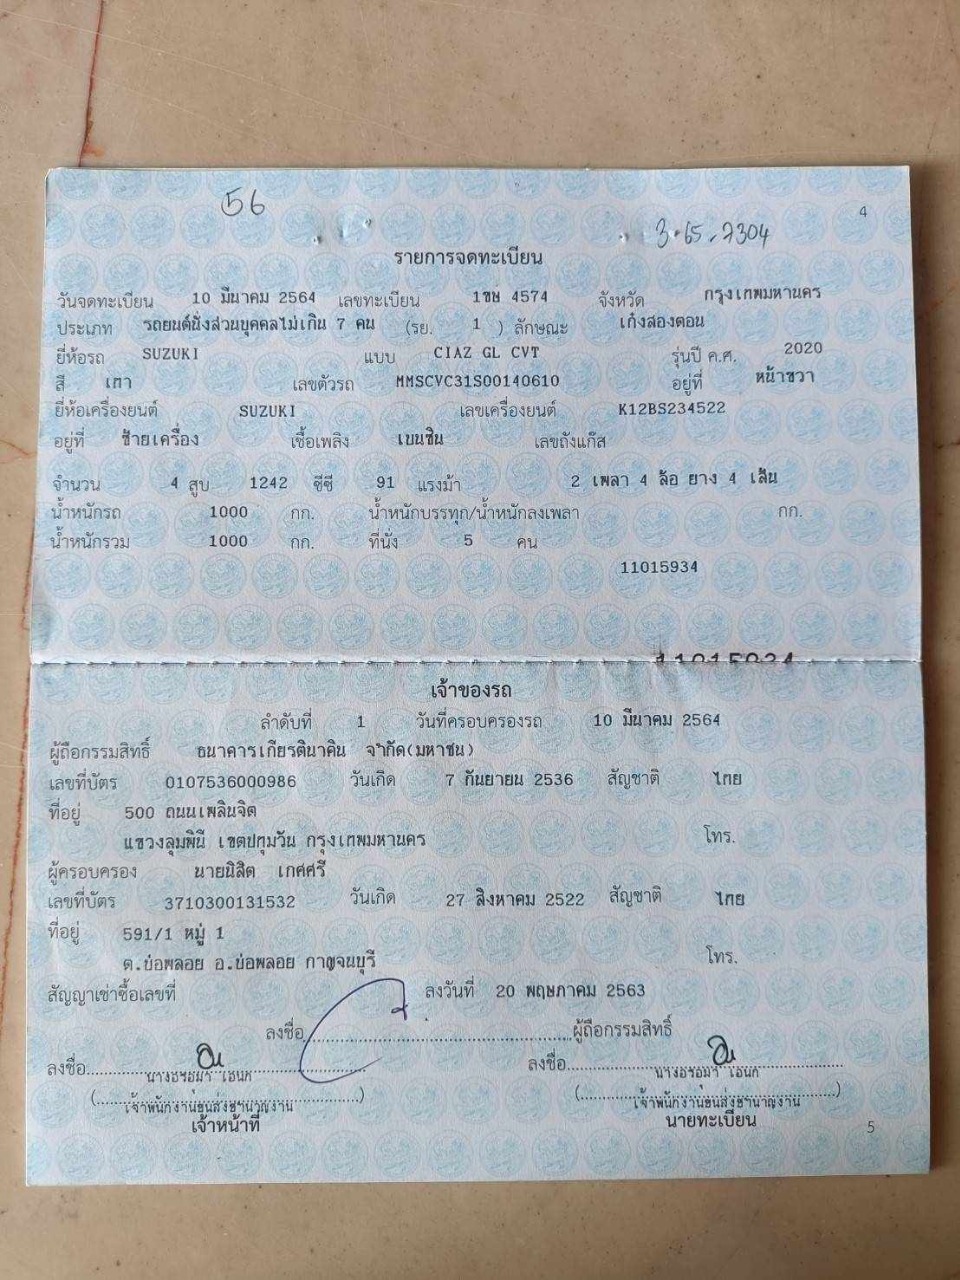 56
4
3-65-7304
รายการจดทะเบียน
วันจดทะเบียน 10 มีนาคม 2564 เลขทะเบียน 1ขษ 4574 จังหวัด กรุงเทพมหานคร
ประเภท รถยนต์นั่งส่วนบุคคลไม่เกิน 7 คน (รย. 1 ) ลักษณะ เก๋งสองตอน
ยี่ห้อรถ SUZUKI แบบ CIAZ GL CVT รุ่นปี ค.ศ. 2020
สี เทา เลขตัวรถ MMSCVC31S00140610 อยู่ที่ หน้าขวา
ยี่ห้อเครื่องยนต์ SUZUKI เลขเครื่องยนต์ K12BS234522
อยู่ที่ ซ้ายเครื่อง เชื้อเพลิง เบนซิน เลขถังแก๊ส
จำนวน 4 สูบ 1242 ซีซี 91 แรงม้า 2 เพลา 4 ล้อ ยาง 4 เส้น
น้ำหนักรถ 1000 กก. น้ำหนักบรรทุก/น้ำหนักลงเพลา กก.
น้ำหนักรวม 1000 กก. ที่นั่ง 5 คน
11015934
11015934
เจ้าของรถ
ลำดับที่ 1 วันที่ครอบครองรถ 10 มีนาคม 2564
ผู้ถือกรรมสิทธิ์ ธนาคารเกียรตินาคิน จำกัด(มหาชน)
เลขที่บัตร 0107536000986 วันเกิด 7 กันยายน 2536 สัญชาติ ไทย
ที่อยู่ 500 ถนนเพลินจิต
แขวงลุมพินี เขตปทุมวัน กรุงเทพมหานคร โทร.
ผู้ครอบครอง นายนิสิต เกศศรี
เลขที่บัตร 3710300131532 วันเกิด 27 สิงหาคม 2522 สัญชาติ ไทย
ที่อยู่ 591/1 หมู่ 1
ต.บ่อพลอย อ.บ่อพลอย กาญจนบุรี โทร.
สัญญาเช่าซื้อเลขที่ ลงวันที่ 20 พฤษภาคม 2563
ลงชื่อ ผู้ถือกรรมสิทธิ์
ลงชื่อ ลงชื่อ
(เจ้าพนักงานขนส่งชำนาญงาน) (เจ้าพนักงานขนส่งชำนาญงาน)
เจ้าหน้าที่ นายทะเบียน
5